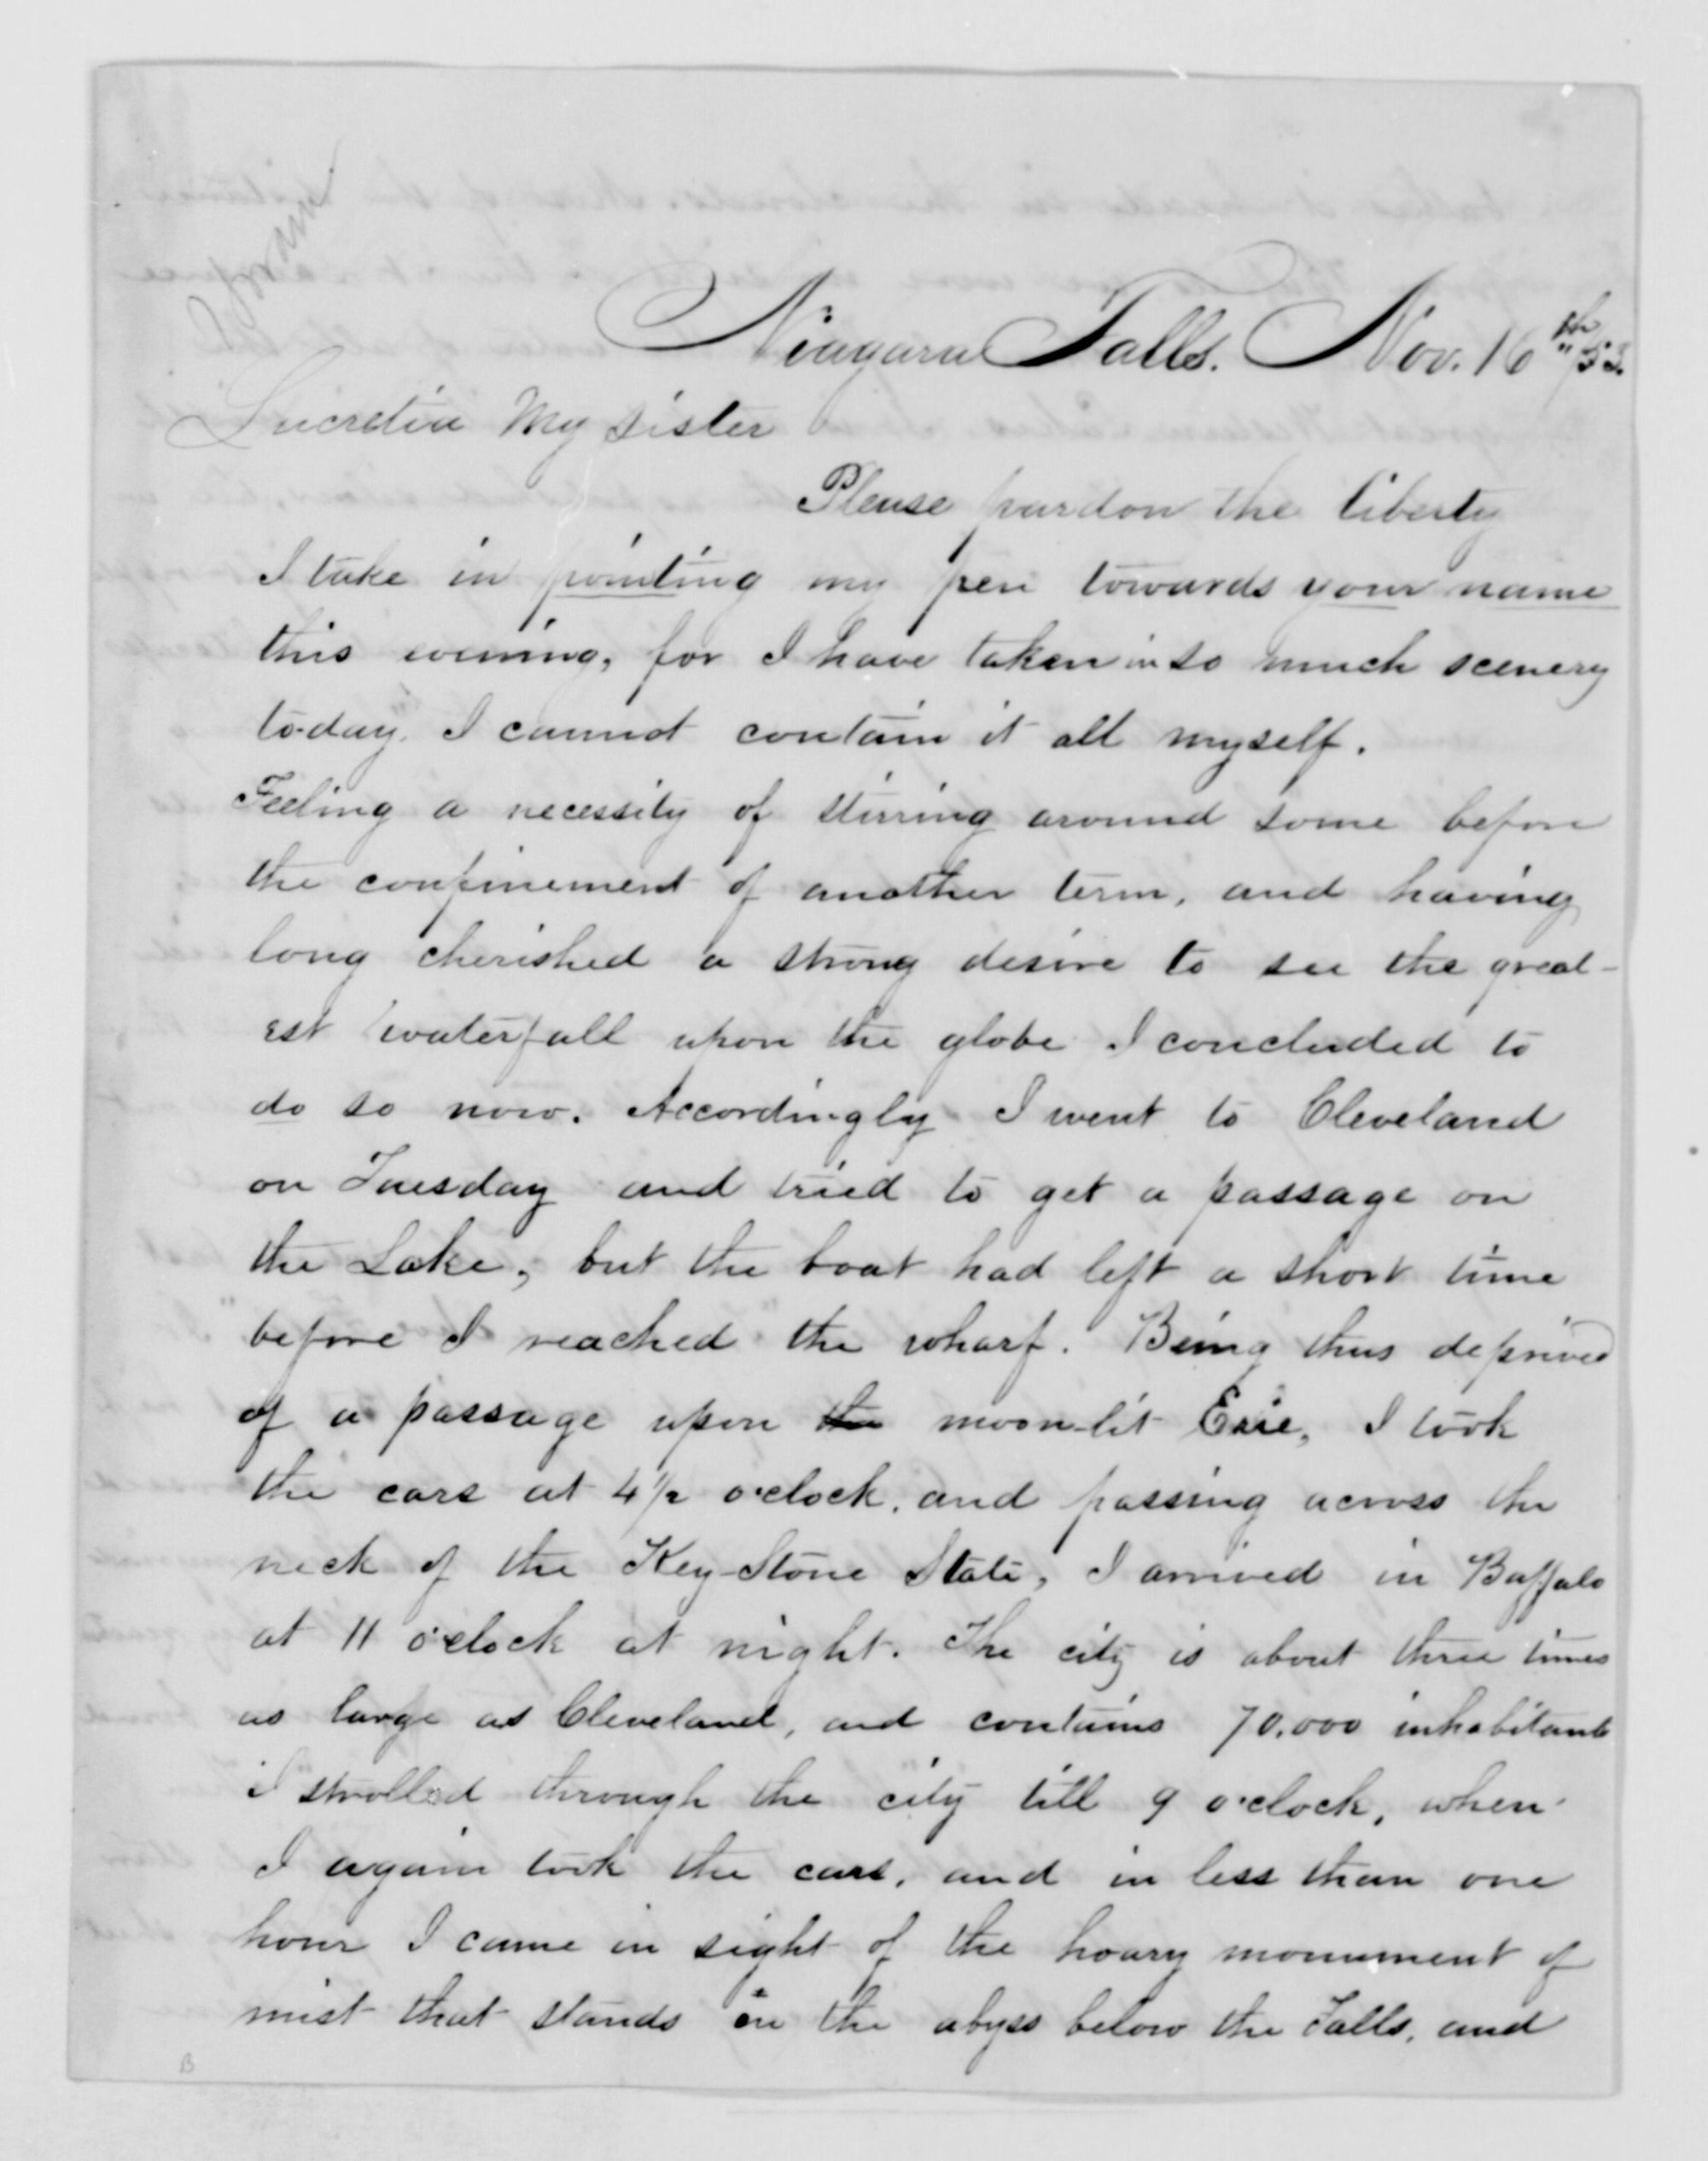 Niagara Falls. Nov. 16th "/53.
Lucretia My Sister
Please pardon the liberty
I take in pointing my pen towards your name
this evening, for I have taken in so much scenery
to-day I cannot contain it all myself.
Feeling a necessity of stirring around some before
the confinement of another term, and having
long cherished a strong desire to see the great-
est waterfall upon the globe I concluded to
do so now. Accordingly I went to Cleveland
on Tuesday and tried to get a passage on
the Lake, but the boat had left a short time
before I reached the wharf. Being thus deprived
of a passage upon the moon-lit Erie, I took
the cars at 4 1/2 o'clock, and passing across the
neck of the Key-Stone State, I arrived in Buffalo
at 11 o'clock at night. The city is about three times
as large as Cleveland, and contains 70.000 inhabitants
I strolled through the city till 9 o'clock, when
I again took the cars, and in less than one
hour I came in sight of the hoary monument of
mist that stands in the abyss below the Falls, and
B